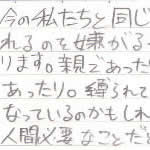 今の私たちと同じ
れるのを嫌がる
ります。親であった
あったり。縛られて
なっているのかもしれ
人間必要なことだ